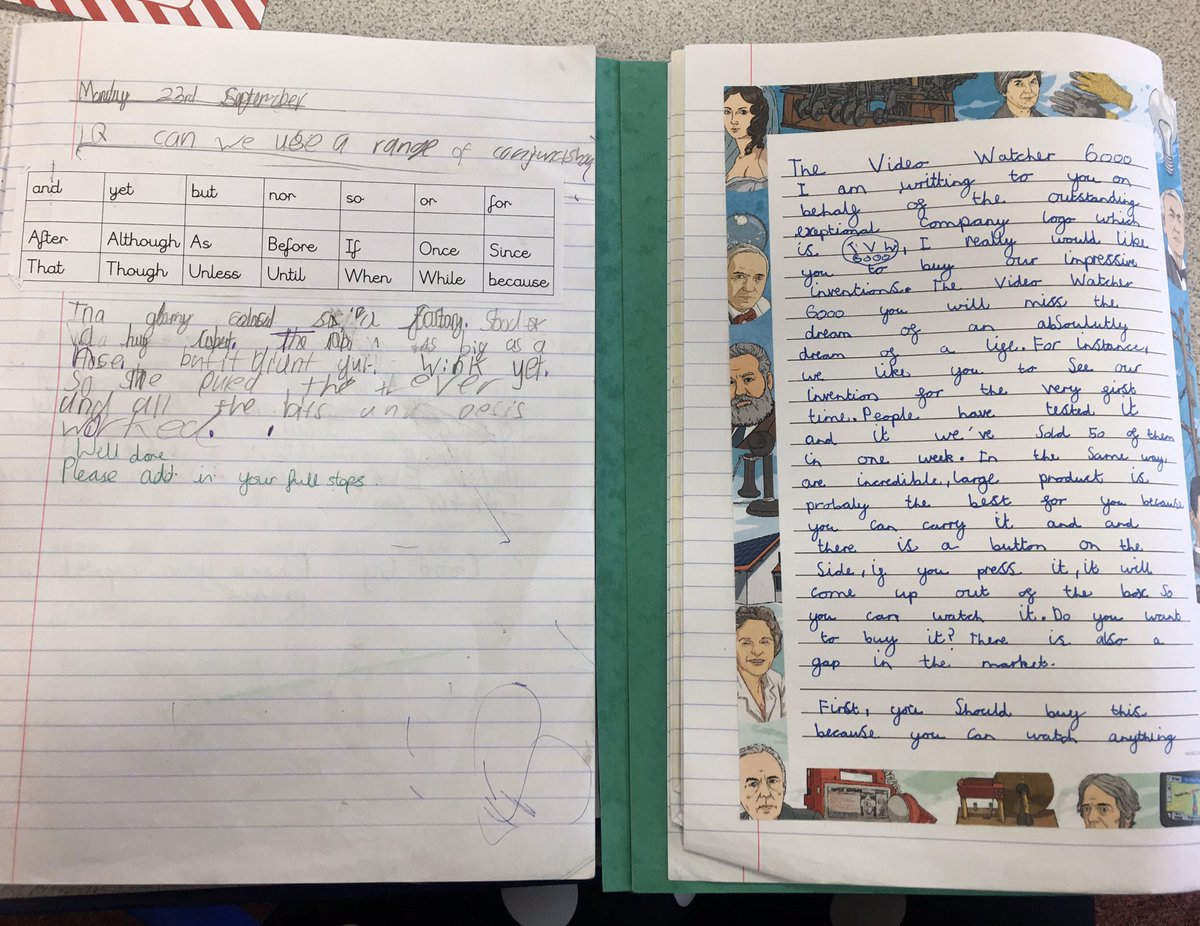 Monday 23rd September
LQ can we use a range of conjunctshons
and yet but nor so or for
After Although As Before If Once Since
That Though Unless Until When While because
factory. Stood
a hug as big as a
but it yet.
So the
and all the bits and
worked.
Well done
Please add in your full stops
The Video Watcher 6000
I am writting to you on
behalf of the outstanding
exeptional Company logo which
is TVW 6000, I really would like
you to buy our impressive
inventions. The Video Watcher
6000 you will miss the
dream of an absoulutly
dream of a life. For instance,
we like you to see our
invention for the very first
time. People have tested it
and it we've sold 50 of them
in one week. In the same way,
are incredible, large product is
probaly the best for you because
you can carry it and and
there is a button on the
Side, if you press it, it will
come up out of the box so
you can watch it. Do you want
to buy it? There is also a
gap in the market.
First, you should buy this
because you can watch anything